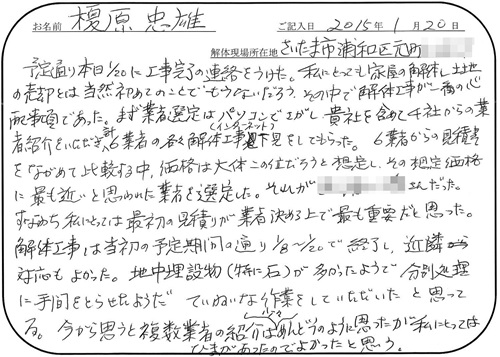 お名前 榎原 忠雄 ご記入日 2015年 1月 20日
解体現場所在地 さいたま市浦和区元町
予定通り本日1/20に工事完了の連絡をうけた。私にとっても家屋の解体し土地
の売却とは当然初めてのことでもうないだろう、その中で解体工事が一番の心
配事項であった。まず業者選定はパソコンでさがし 貴社を含めて千社からの業
(インターネット)
者紹介をいただき、計6業者の各々解体工事下見をしてもらった。6業者からの見積書
をながめて比較する中、価格は大体この位だろうと想定し、その想定価格
に最も近いと思われた業者を選定した。それが さんだった。
すなわち私にとっては最初の見積りが業者決める上で最も重要だと思った。
解体工事は当初の予定期間の通り1/8~1/20で終了し、近隣
対応もよかった。地中埋設物(特に石)が多かったようで 分別処理
に手間をとらせたようだ ていねいな作業をしていただいたと思って
る。今から思うと複数業者の紹介は少々めんどうのように思ったが私にとっては
ひまがあったのでよかったと思う。